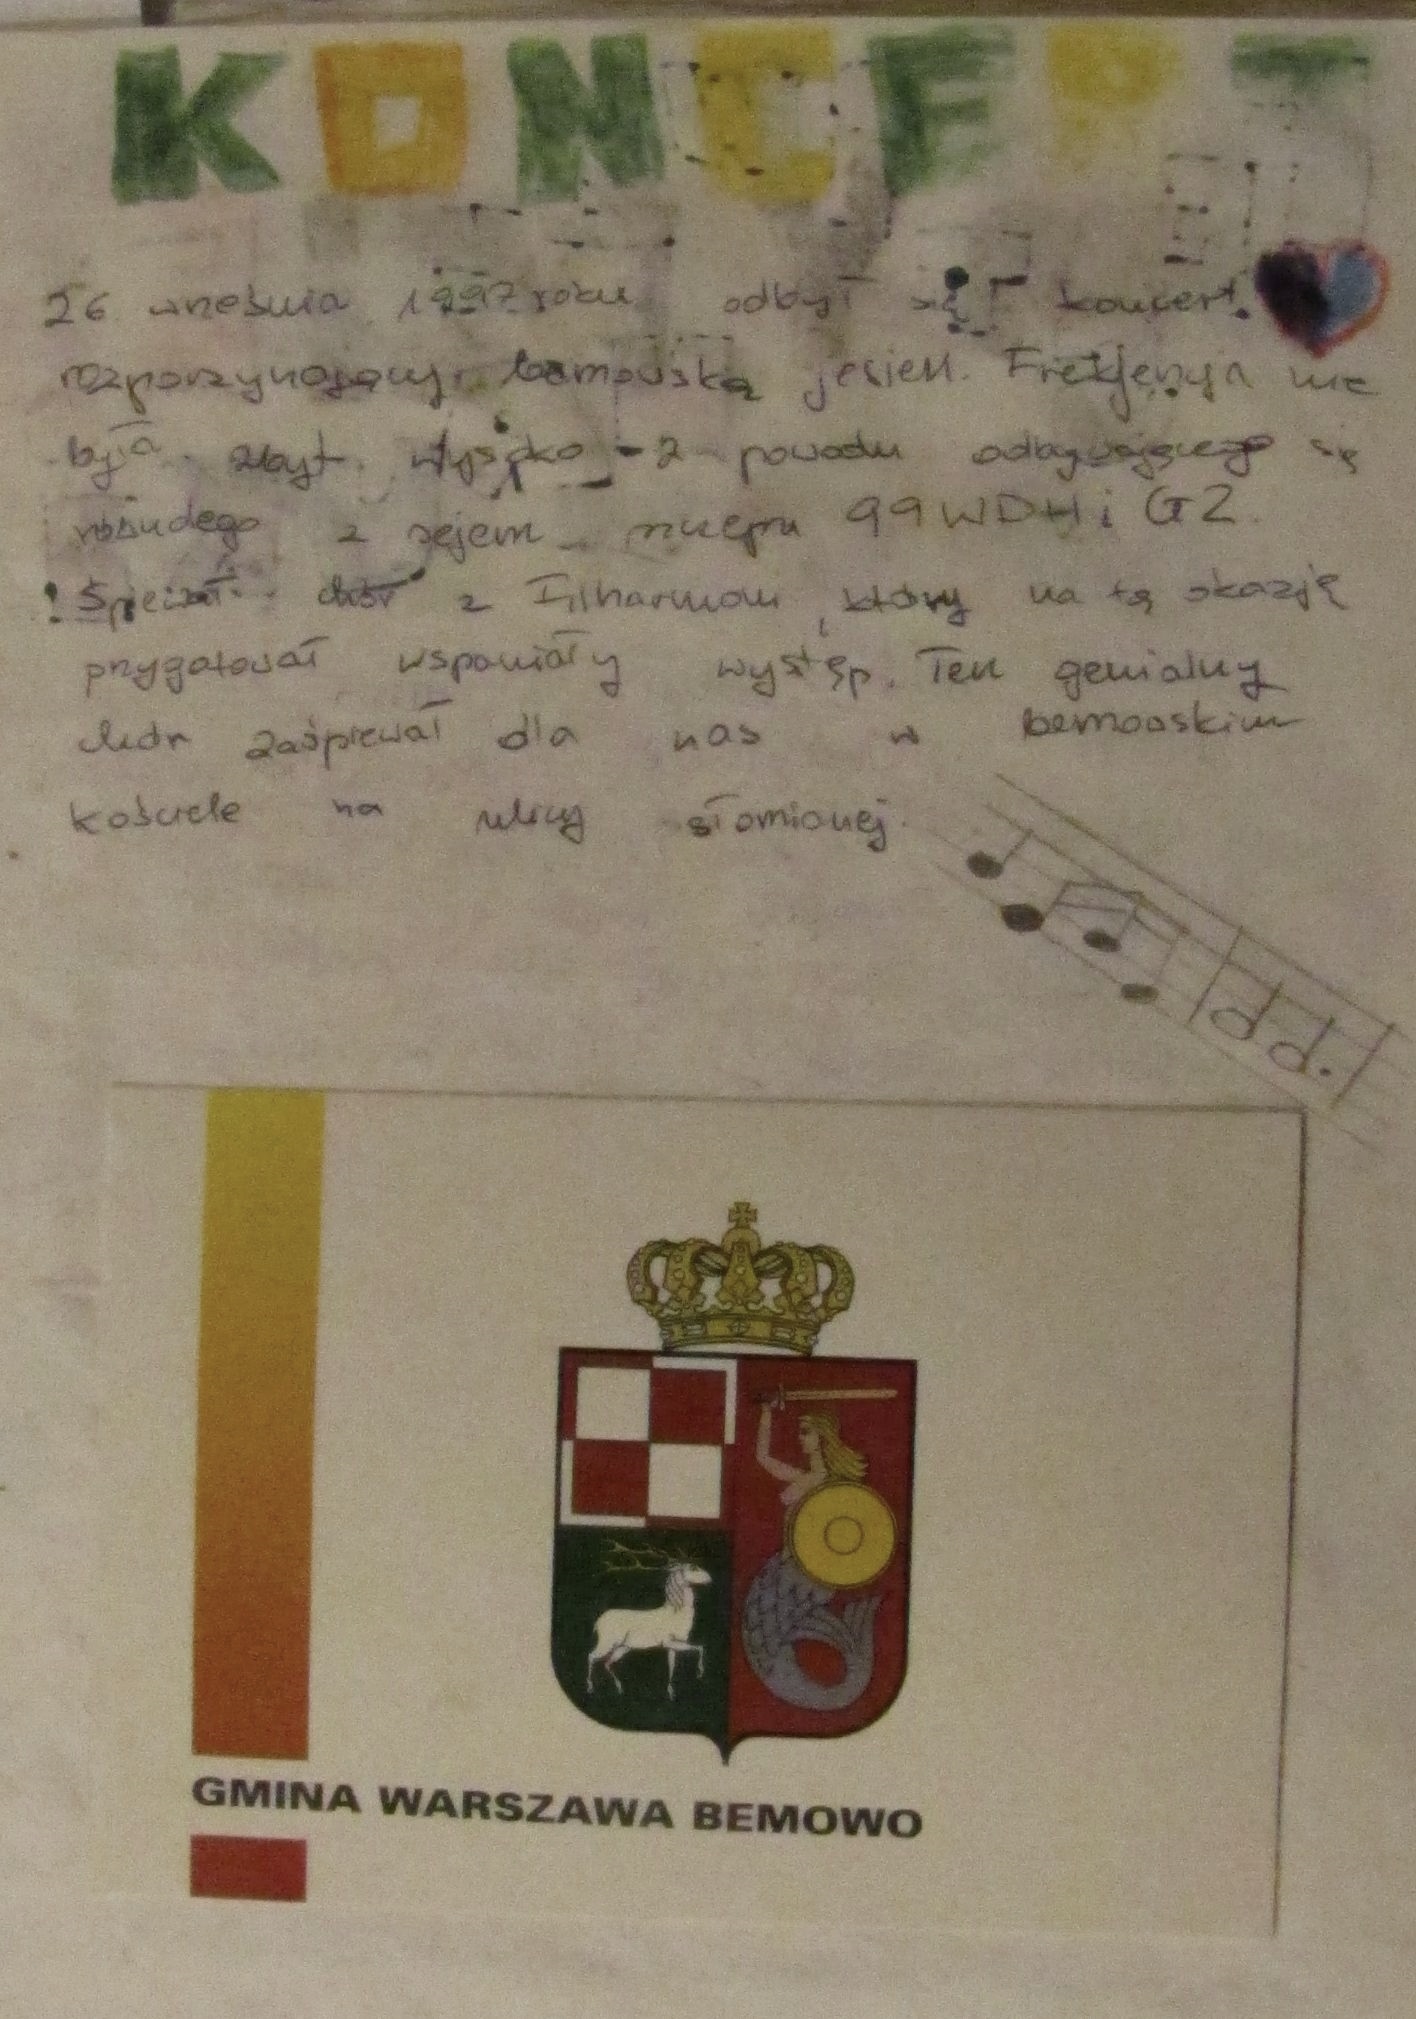 KONCERT
26 września 1997 roku odbył się koncert
rozpoczynający bemowską jesień. Frekfencja nie
była zbyt wysoka - z powodu odbywającego się
z rejem 99 WDH i GZ.
Śpiewał chór z Filharmoni który na tą okazję
przygotował wspaniały występ. Ten genialny
chór zaśpiewał dla nas w bemowskim
kościele na ulicy słomianej.
GMINA WARSZAWA BEMOWO